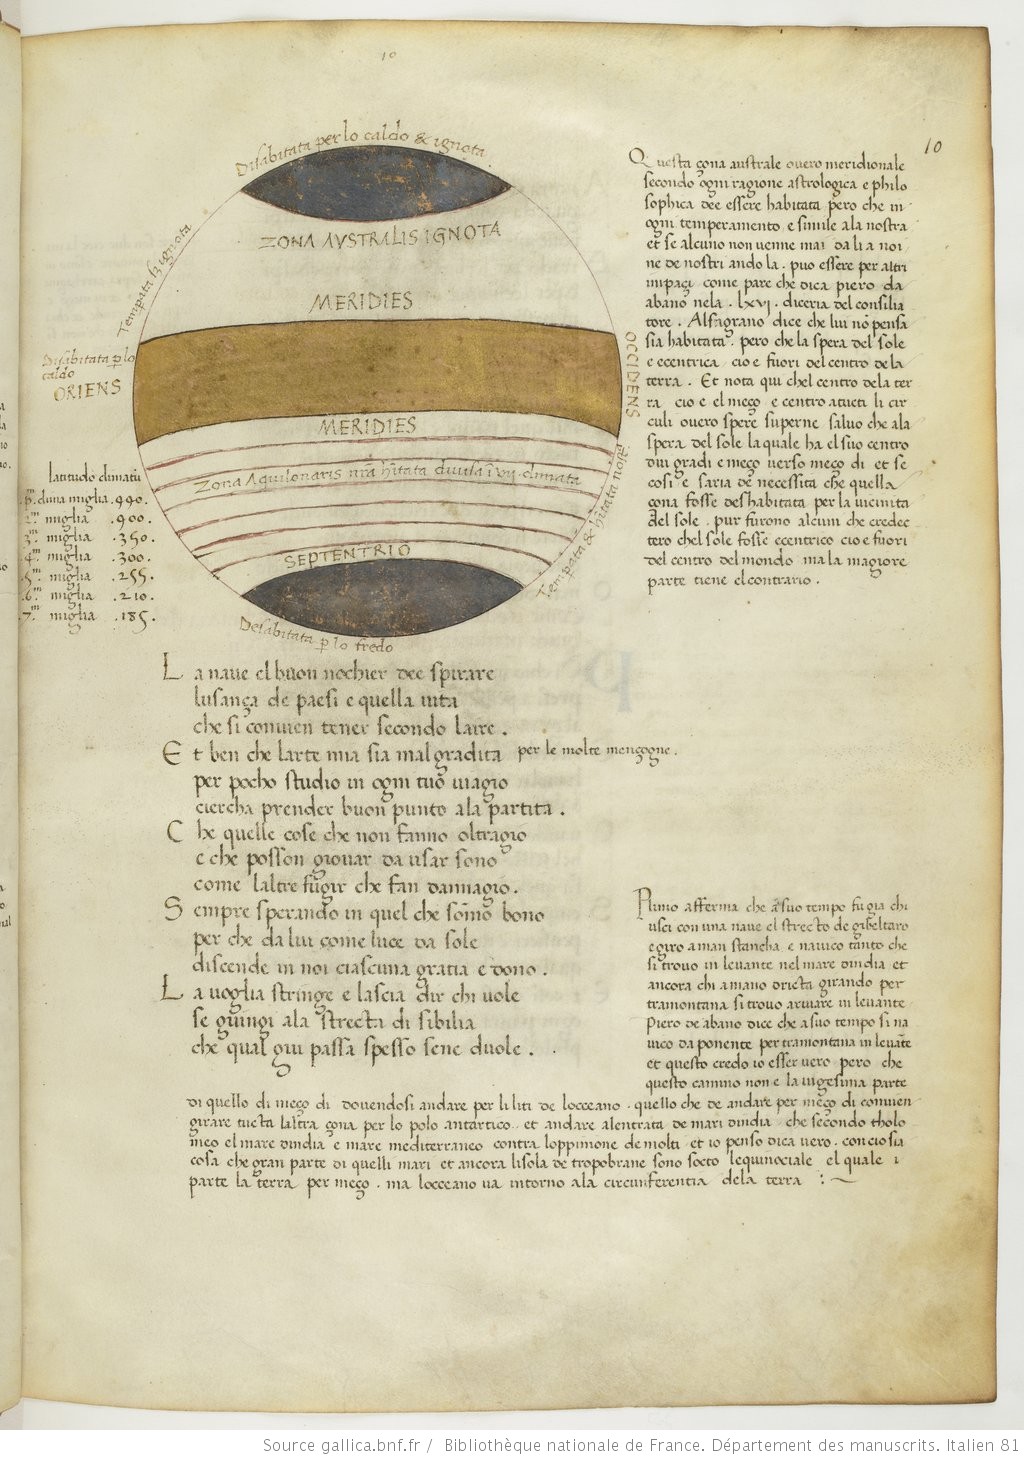 10
10
Disabitata per lo caldo & ignota.
ZONA AVSTRALIS IGNOTA
Tempata & ignota
MERIDIES
Disabitata p lo
caldo
ORIENS
OCCIDENS
MERIDIES
Zona Aquilonaris nra hitata divisa i vii climata
SEPTENTRIO
Temperata & hitata nostra
Desabitata p lo fredo
latitudo climatu
.p.a clima miglia .440.
2.m miglia .400.
3.m miglia .350.
4.m miglia .300.
5.m miglia .255.
6.m miglia .210.
7.m miglia .185.
Questa çona australe overo meridionale
secondo ogni ragione astrologica e philo
sophica dee essere habitata pero che in
ogni temperamento e simile ala nostra
et se alcuno non venne mai da li a noi
ne de nostri ando la . puo essere per altri
impaçi come pare che dica piero da
abano nela . lxvi . diceria del consilia
tore . Alfagrano dice che lui nō pensa
sia habitata . pero che la spera del sole
e ecentrica cio e fuori del centro de la
terra . Et nota qui chel centro dela ter
ra cio e el meço e centro a tucti li cir
culi overo spere superne salvo che ala
spera del sole la quale ha el suo centro
dui gradi e meço verso meço di et se
cosi e saria de necessita che quella
çona fosse deshabitata per la vicinita
del sole . pur furono alcuni che credec
tero chel sole fosse ecentrico cio e fuori
del centro del mondo ma la magiore
parte tiene el contrario .
La nave el buon nochier dee spirare
lusança de paesi e quella vita
che si convien tener secondo laire .
Et ben che larte mia sia mal gradita per le molte mençogne .
per pocho studio in ogni tuo viagio
ciercha prender buon punto ala partita .
Che quelle cose che non fanno oltragio
e che posson giovar da usar sono
come laltre fugir che fan dannagio .
Sempre sperando in quel che sōmo bono
per che da lui come luce da sole
discende in noi ciascuna gratia e dono .
La voglia stringe e lascia dir chi vole
se giungi ala strecta di sibilia
che qual giu passa spesso sene duole .
Plinio afferma che a suo tempo fu gia chi
usci con una nave el strecto de gibeltaro
e giro a man stancha e navico tanto che
si trovo in levante nel mare dindia et
ancora chi a mano dricta girando per
tramontana si trovo arivare in levante
Piero de abano dice che a suo tempo si na
vico da ponente per tramontana in levāte
et questo credo io esser vero pero che
questo camino non e la vigesima parte
di quello di meço di dovendosi andare per li liti de locceano . quello che de andare per meço di convien
girare tucta laltra çona per lo polo antartico et andare alentrata de mari dindia che secondo tholo
meo el mare dindia e mare mediterraneo contra loppinione de molti et io penso dica vero . con cio sia
cosa che gran parte di quelli mari et ancora lisola de tropobane sono socto lequinociale el quale i
parte la terra per meço . ma locceano va intorno ala circunferentia dela terra :~
Source gallica.bnf.fr / Bibliothèque nationale de France. Département des manuscrits. Italien 81